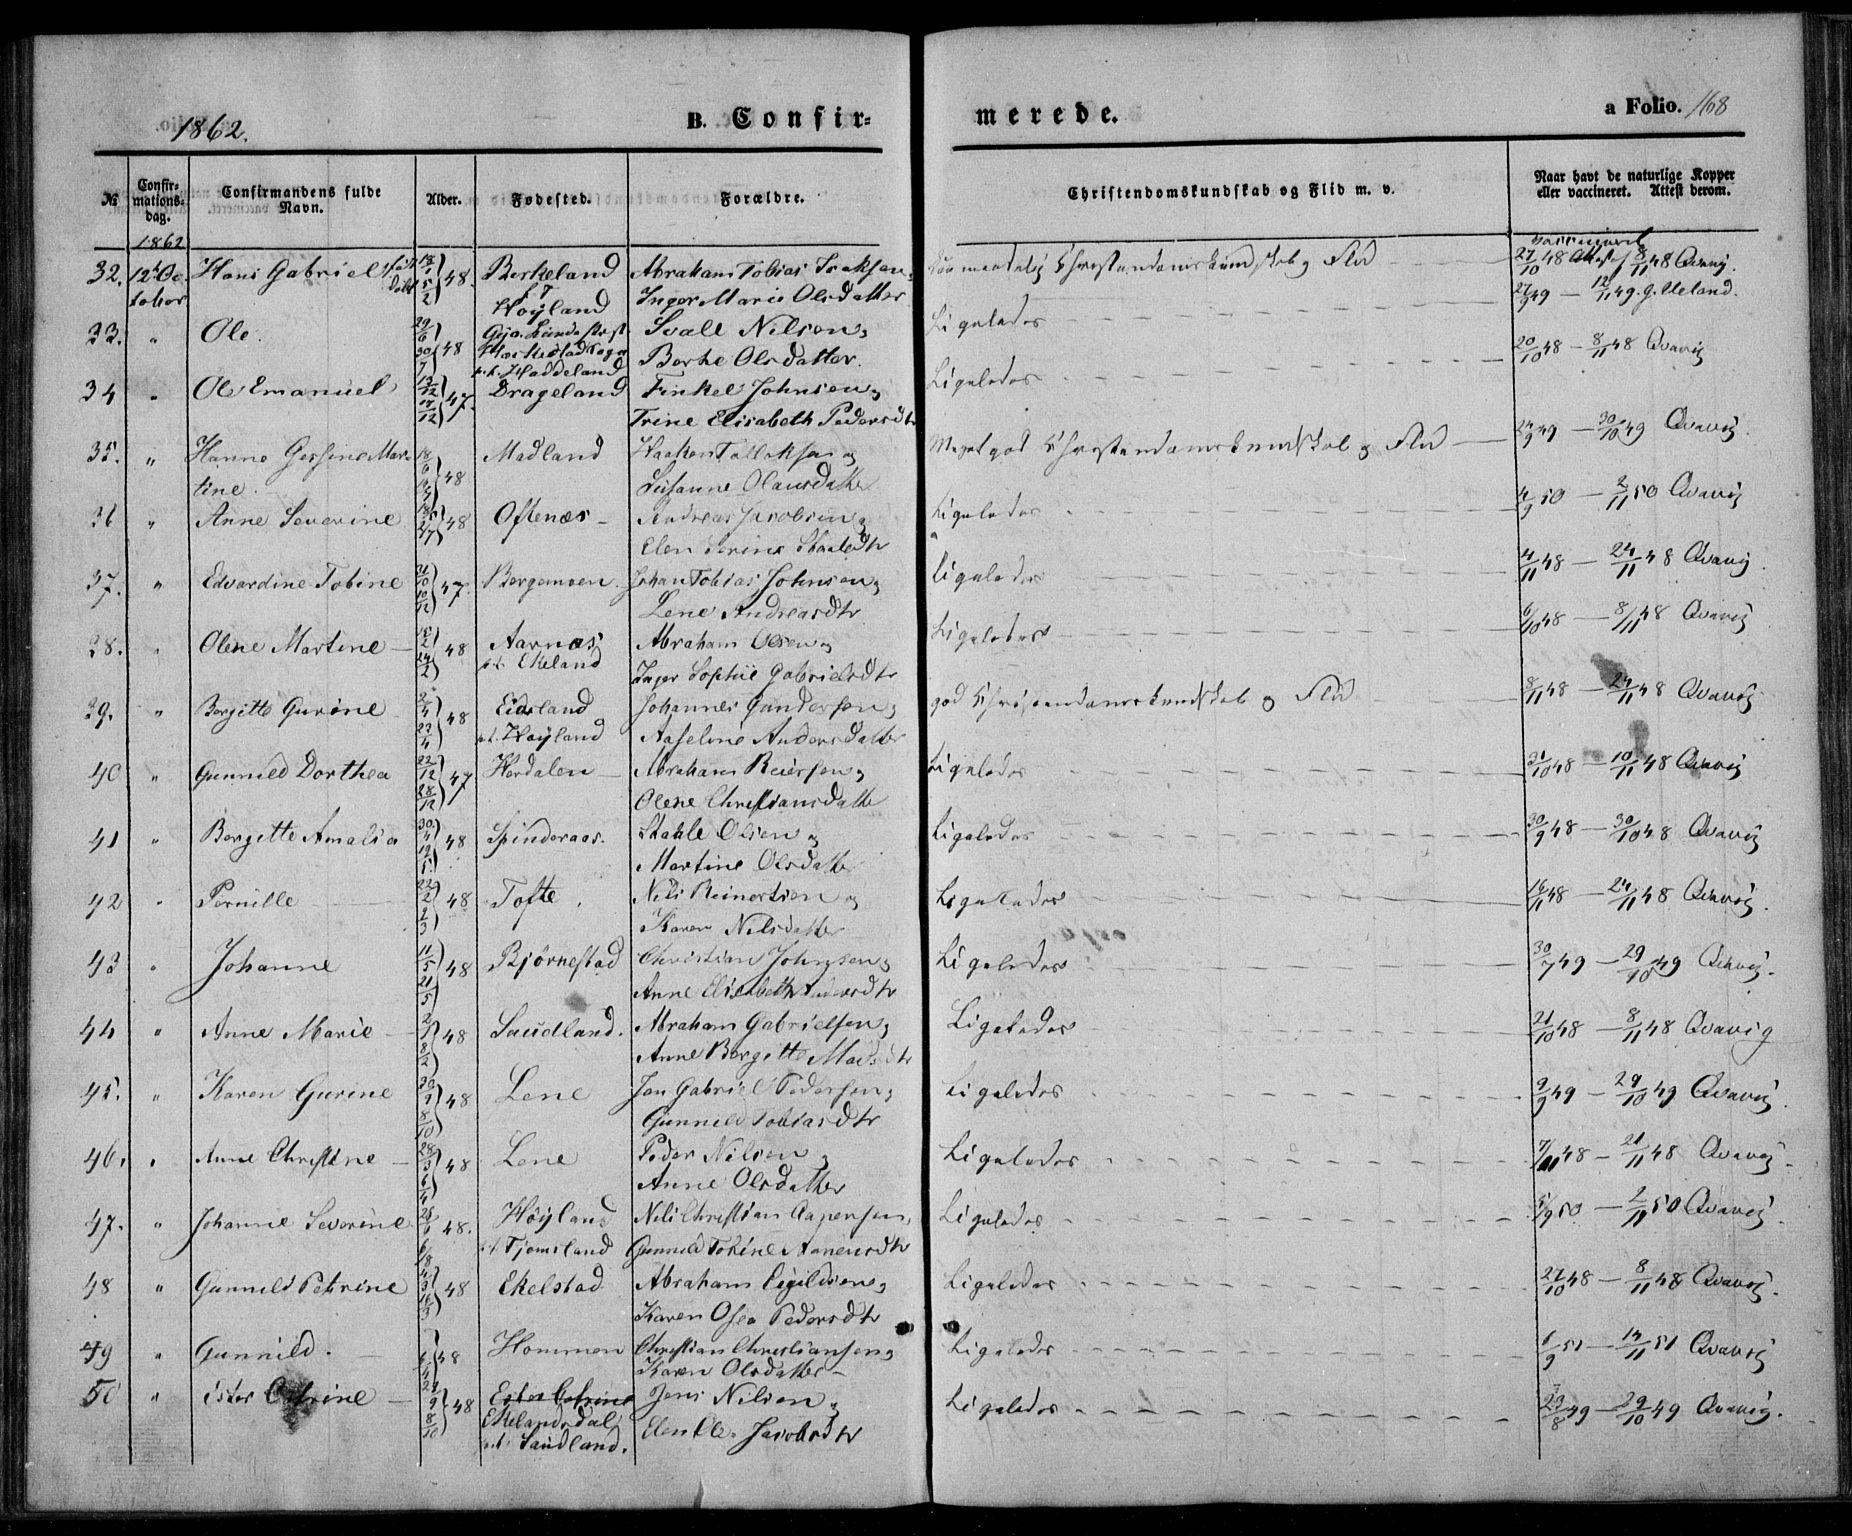 1862.
B. Confir-
merede.
a Folio. 168
№
Confir-
mations-
dag.
Confirmandens fulde
Navn.
Alder.
Fødested.
Forældre.
Christendomskundskab og Flid m. v.
Naar havt de naturlige Kopper
eller vaccineret. Attest derom.
1862
vaccineret
32. 12te Oc- Hans Gabriel 48. Birkeland Abraham Tobias Isaksen Christendomskundskab og Flid 27/10 48 Attest 8/11 48 Qvavig.
tober Høyland Inger Marie Olsdatter
33. " Ole. 29/6 30/7 48 Svale Nilsen Ligeledes 27/9 49 — 12/11 49. G. Ueland.
Haddeland Berthe Olsdatter.
34 " Ole Emanuel 13/12 17/12 47. Drageland Tinkel Johnsen Ligeledes 20/10 48 — 8/11 48 Qvavig
Trine Elisabeth Pedersdtr
35. " Hanne Gesine Mar- 48 Madland Haaken Tollaksen og Meget god Christendomskundskab og Flid 24/9 49 — 30/10 49 Qvavig.
tine. Susanne Olausdatter
36 " Anne Severine 48 Oftenæs Andreas Jacobsen Ligeledes 4/9 50 — 2/11 50 Qvavig
Elen Serine Staaledtr
37. " Edvardine Tobine 47. Bergemoen. Johan Tobias Johnsen Ligeledes 4/11 48 — 24/11 48 Qvavig
Lene Andreasdtr
38. " Olene Martine 48 Aarnæs Abraham Olsen Ligeledes 6/10 48 — 8/11 48 Qvavig
Ekeland Inger Sophie Gabrielsdtr
39. " Bergitte Gurine 2/4 23/4 48 Eidsland Johannes Gundersen god Christendomskundskab og Flid 8/11 48 — 24/11 48 Qvavig
Høyland Aaseline Andersdatter
40 " Gunnild Dorthea 22/12 28/12 47 Herdalen Abraham Reiersen Ligeledes 31/10 48 — 10/11 48 Qvavig
Olene Christiansdatter
41 " Bergitte Amalia 30/4 19/5 48 Spinderaas. Stahle Olsen og Ligeledes 30/9 48 — 30/10 48 Qvavig
Martine Olsdatter
42 " Pernille 22/2 2/3 48 Tofte. Nils Reinertsen og Ligeledes 16/11 48 — 24/11 48 Qvavig.
Karen Nilsdatter
43 " Johanne 11/5 21/5 48 Bjørnestad Christian Johnsen Ligeledes 30/7 49 — 29/10 49 Qvavig.
Anne Elisabeth Andersdtr
44 " Anne Marie 48 Saudland. Abraham Gabrielsen Ligeledes 21/10 48 — 8/11 48 Qvavig
Anne Bergitte Madsdtr
45. " Karen Gurine 48 Lene Jan Gabriel Pedersen Ligeledes 9/9 49 — 29/10 49 Qvavig.
Gunnild Tobiasdtr
46. " Anne Christine 28/3 6/4 48 Lene Peder Nilsen Ligeledes 7/11 48 — 21/11 48 Qvavig.
Anne Olsdatter
47. " Johanne Severine 48. Høyland Nils Christian Aanensen Ligeledes 5/9 50 — 2/11 50 Qvavig.
Tjomsland Gunnild Tobine Aanensdtr
48 " Gunnild Petrine 48 Ekelstad Abraham Eigildsen Ligeledes 27/10 48 — 8/11 48 Qvavig.
Karen Osea Pedersdtr
49 " Gunnild. 48 Hommen Christian Christiansen Ligeledes 6/9 51 — 14/11 51 Qvavig
Karen Olsdatter
50 " Ester Catrine 48 Ester Catrine Jens Nilsen Ligeledes 23/8 49 — 29/10 49 Qvavig.
Ekelandsdal Jacobsdtr
Saudland.